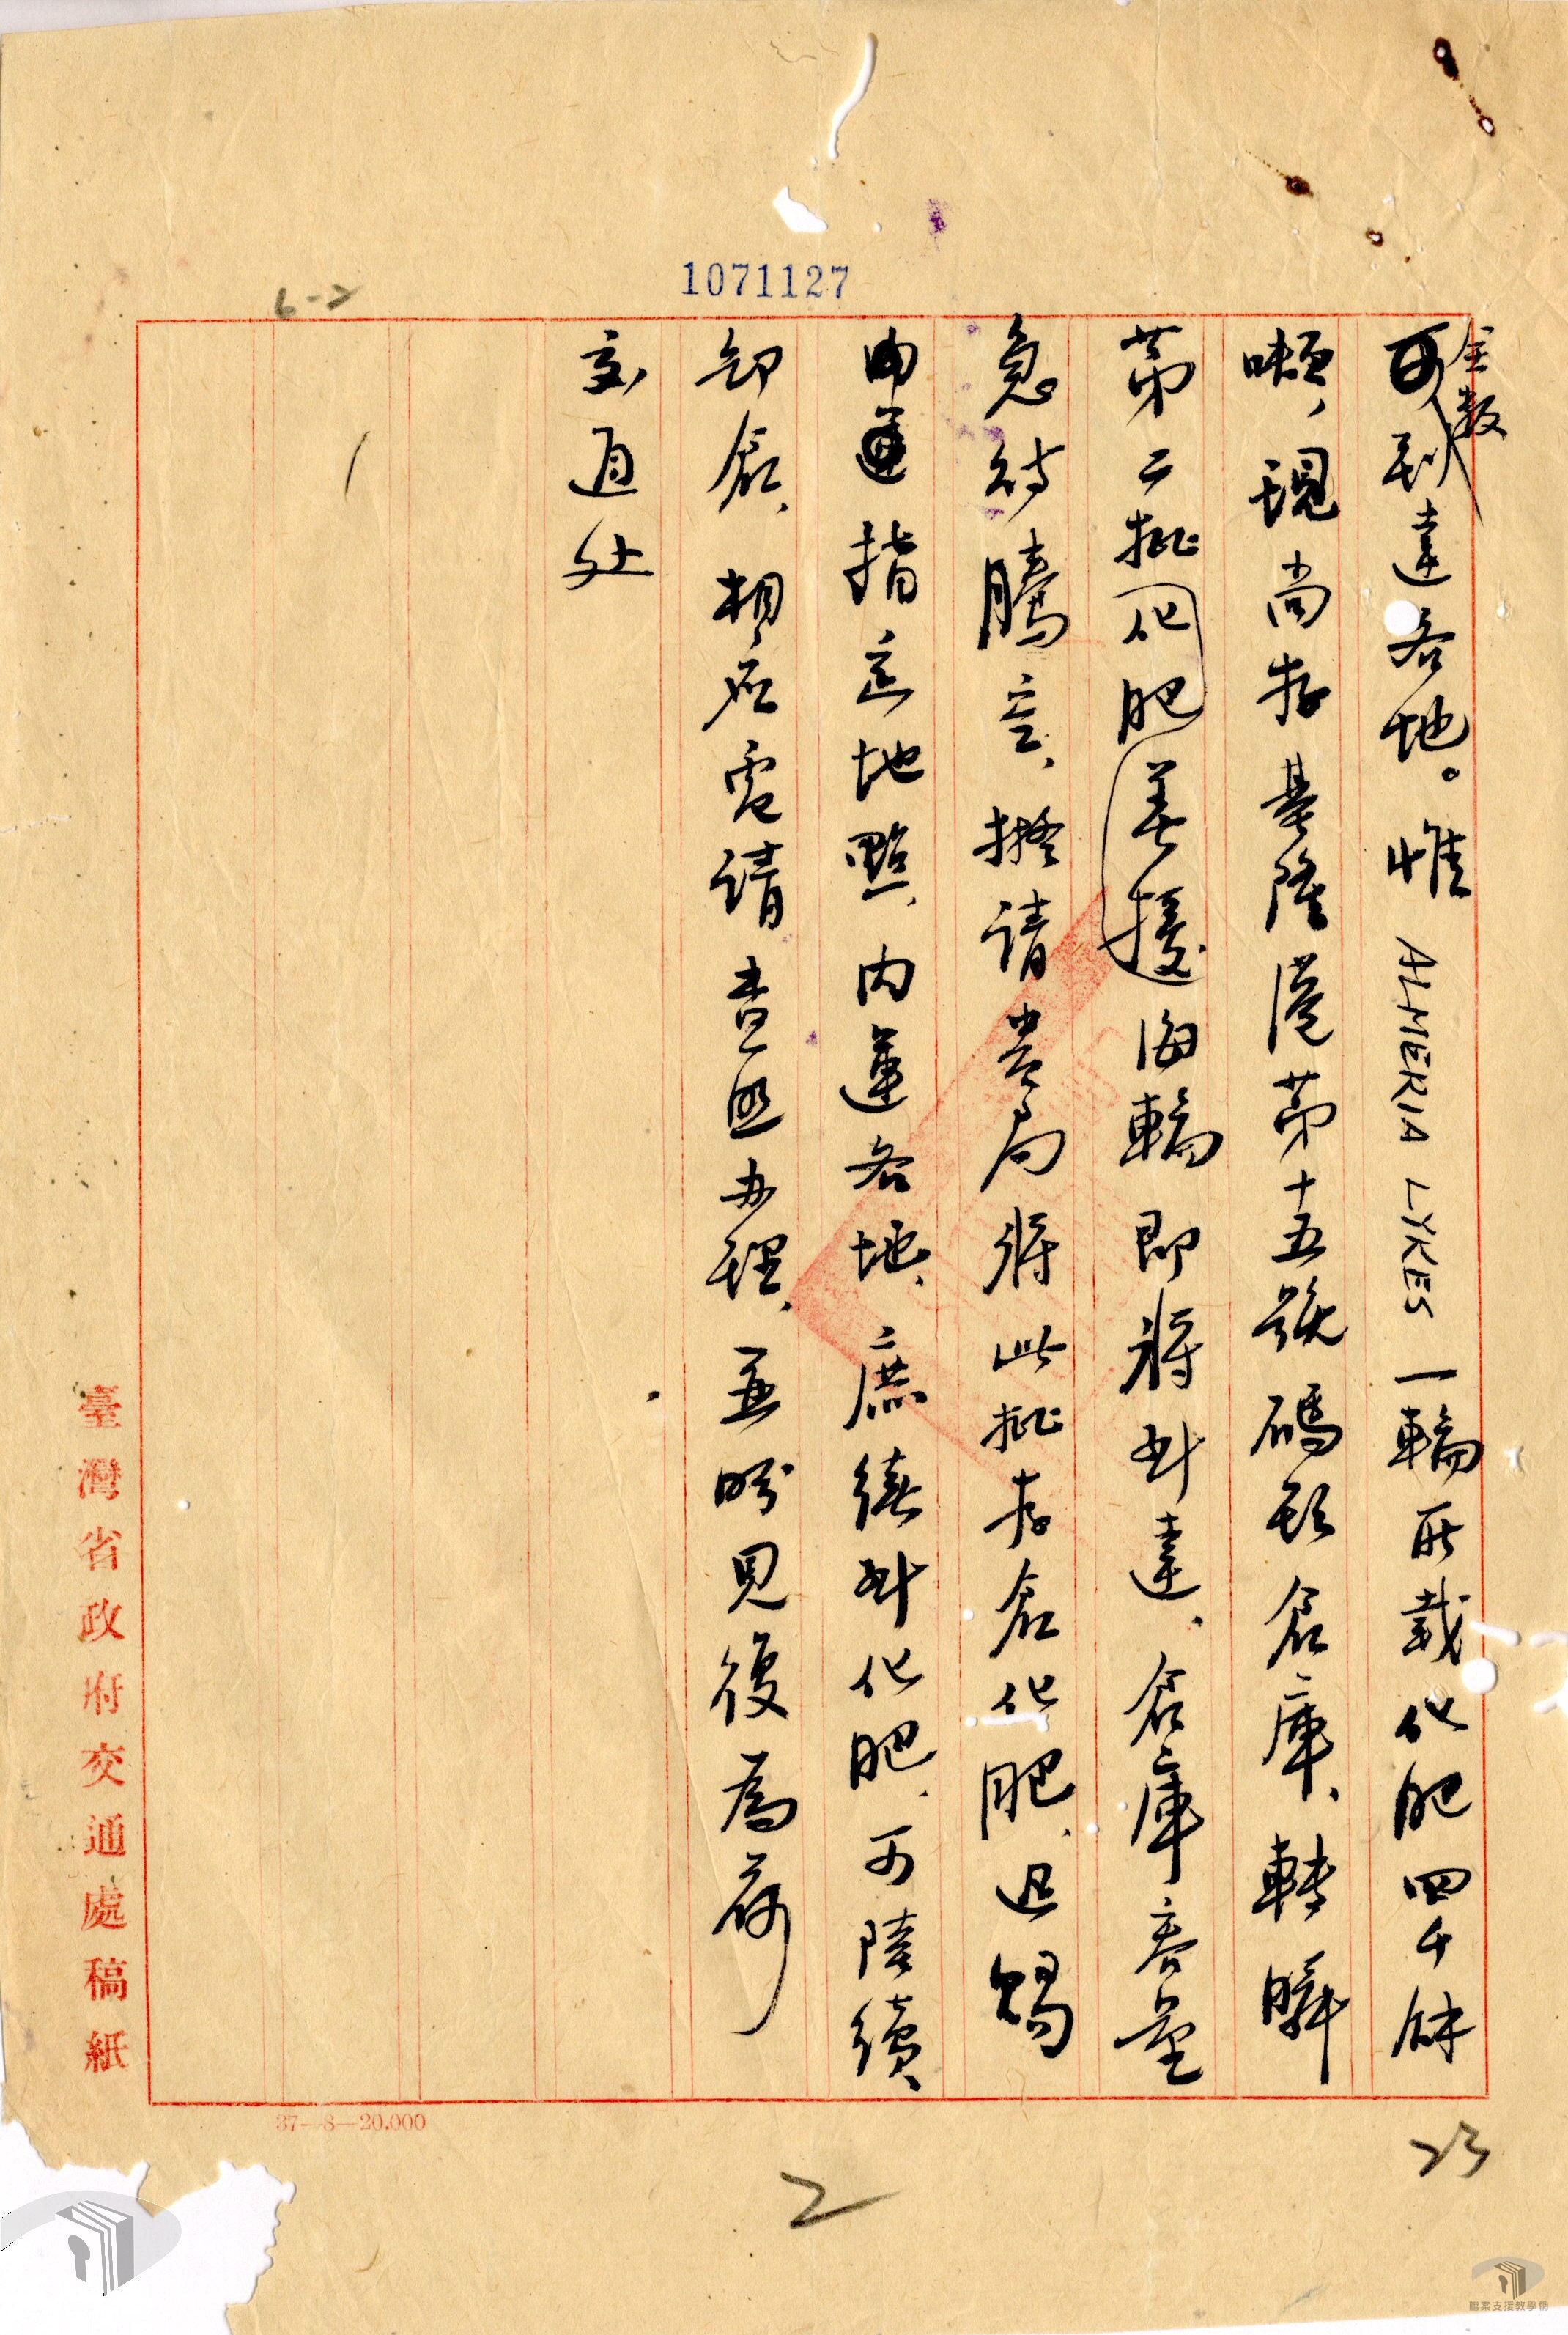 1071127
6-2
全數
可到達各地。惟 ALMERIA LYKES 一輪所載化肥四千餘
噸，現尚存基隆港第十五號碼頭倉庫、轉瞬
第二批化肥美援海輪即將到達、倉庫容量
急待騰空、擬請貴局將此批存倉化肥、迅賜
由 指定地點、内運各地、庶續到化肥、可陸續、
卸倉、相應電請查照办理、並盼見復為荷
交通处
臺灣省政府交通處稿紙
37—8—20.000
23
2
檔案支援教學網